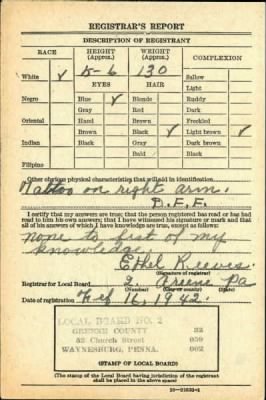 REGISTRAR'S REPORT
DESCRIPTION OF REGISTRANT
RACE HEIGHT (Approx.) WEIGHT (Approx.) COMPLEXION
White ✓ 5-6 130 Sallow
Light
EYES HAIR
Negro Blue ✓ Blonde Ruddy
Gray Red Dark
Oriental Hazel Brown Freckled
Brown Black ✓ Light brown ✓
Indian Black Gray Dark brown
Bald Black
Filipino
Other obvious physical characteristics that will aid in identification
Tattoo on right arm.
B.F.F.
I certify that my answers are true; that the person registered has read or has had
read to him his own answers; that I have witnessed his signature or mark and that
all of his answers of which I have knowledge are true, except as follows:
None to best of my
knowledge.
Ethel Reeves
(Signature of registrar)
Registrar for Local Board 2 Greene Pa
(Number) (City or county) (State)
Date of registration Feb 16, 1942.
LOCAL BOARD NO. 2
GREENE COUNTY 32
52 Church Street 059
WAYNESBURG, PENNA. 002
(STAMP OF LOCAL BOARD)
(The stamp of the Local Board having jurisdiction of the registrant
shall be placed in the above space.)